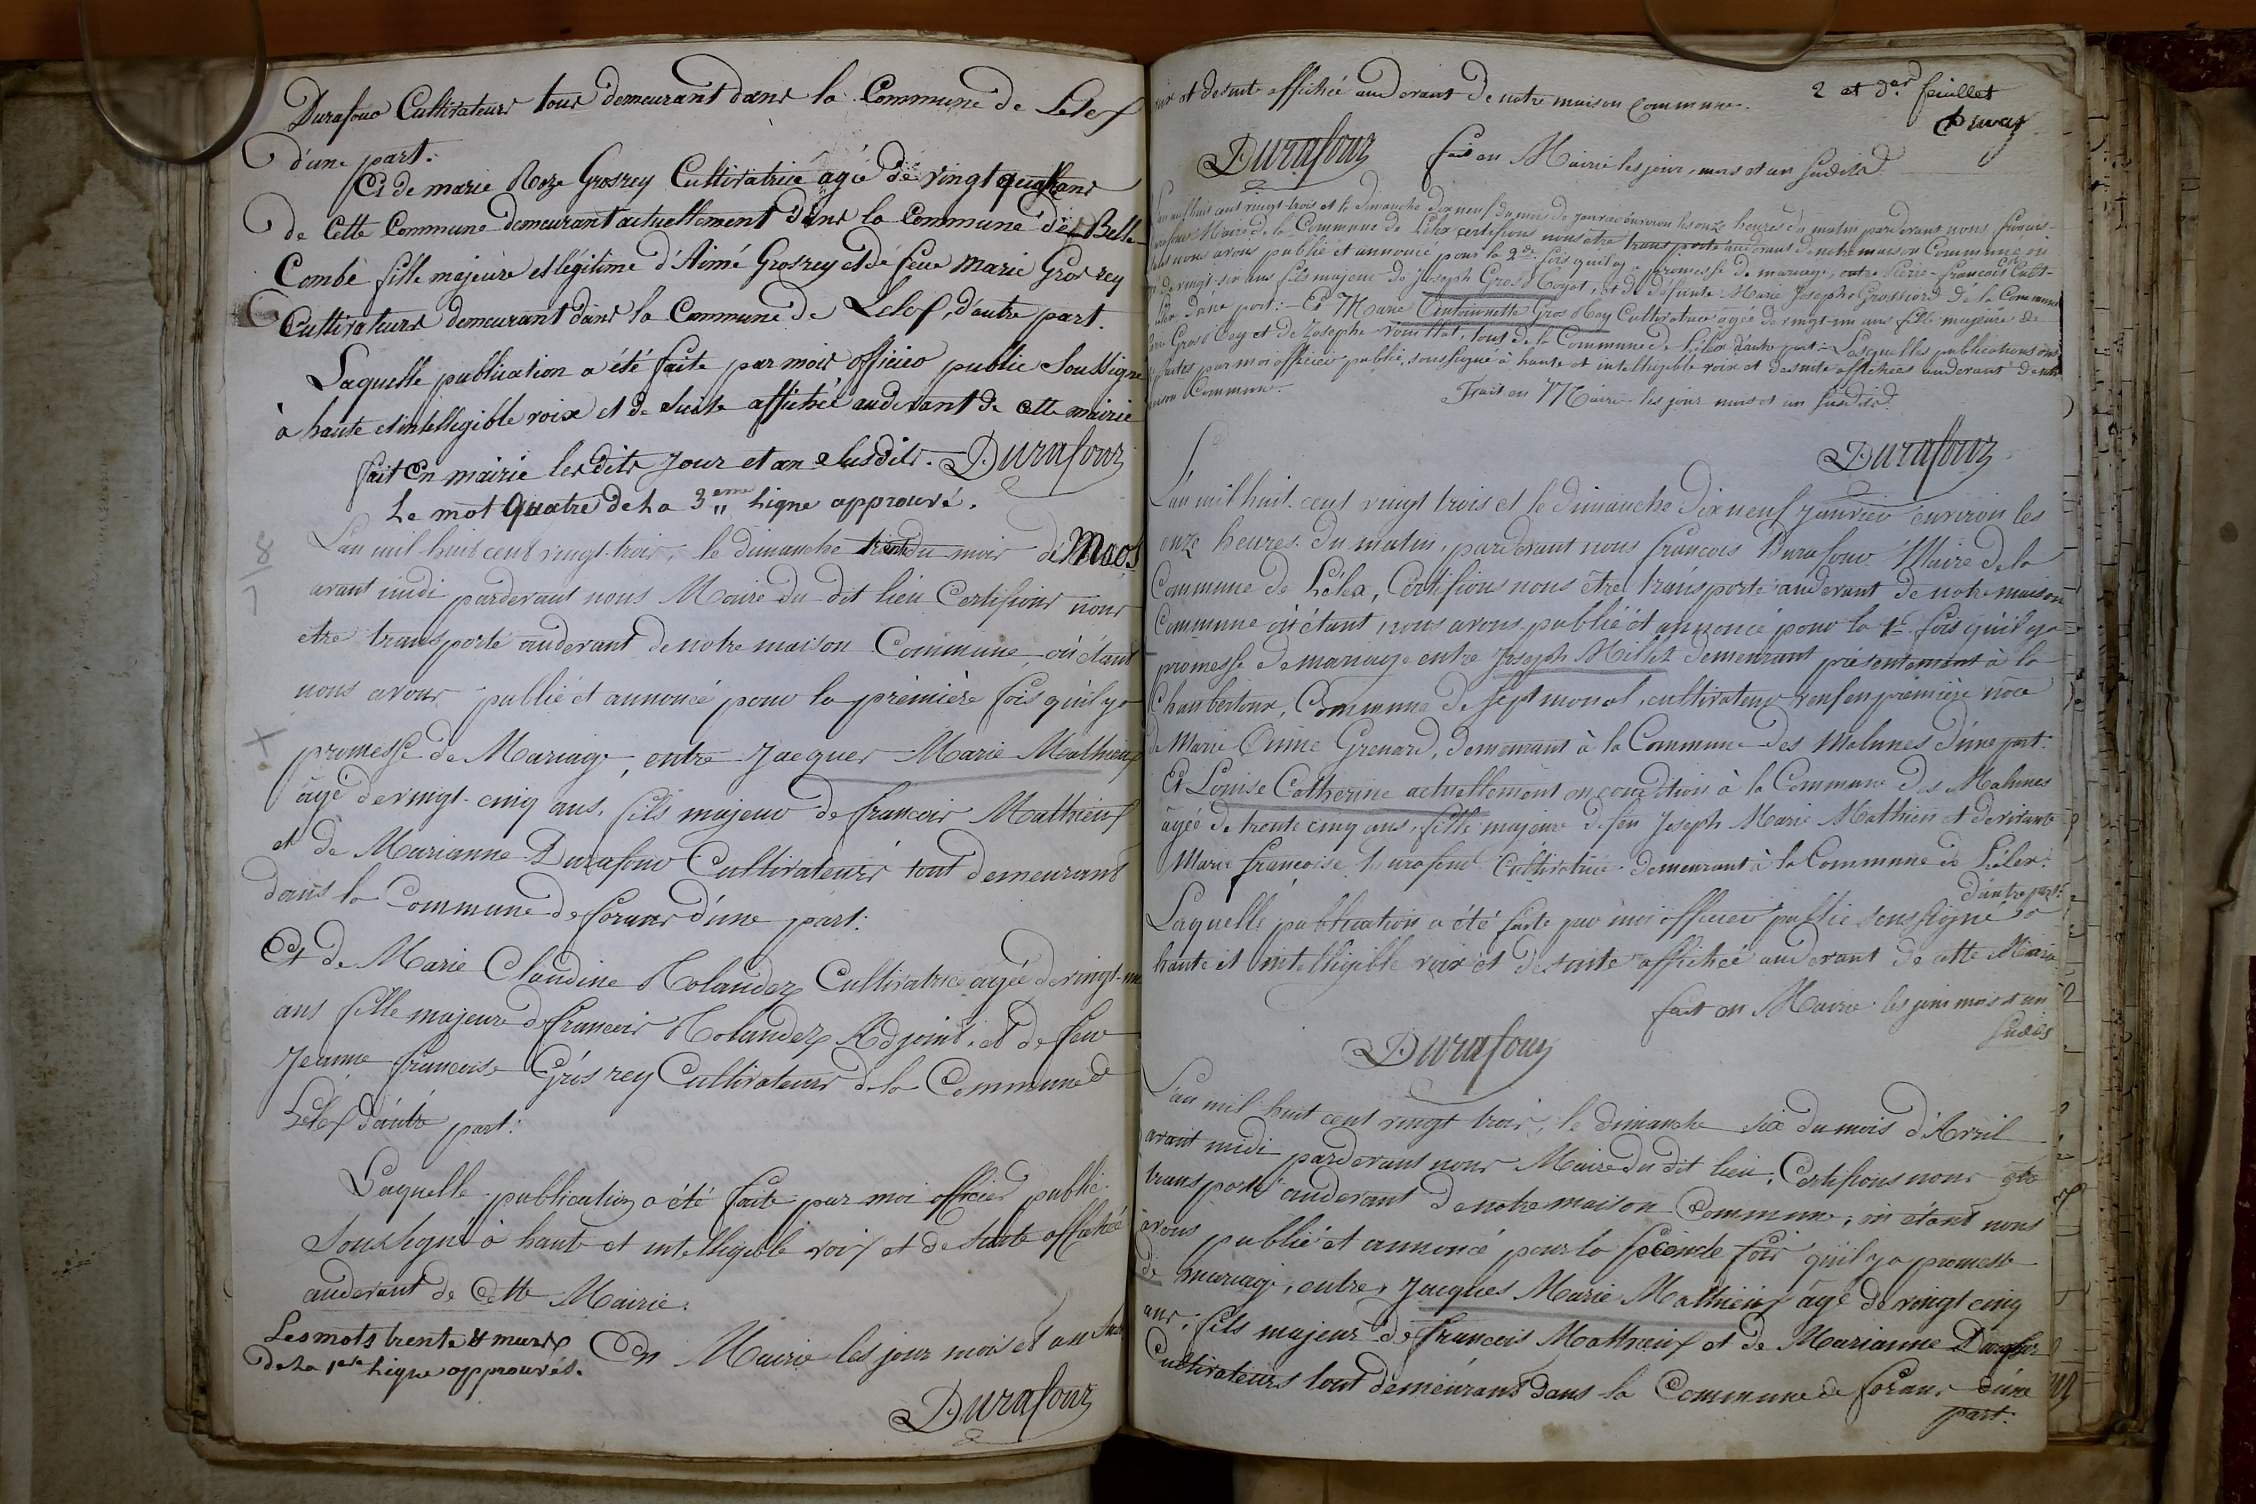 Durafour Cultivateurs tous demeurant dans la Commune de Lelex
d'une part.
Et de marie Roze Grosrey Cultivatrice agée de vingt quatre ans
de Cette Commune demeurant actuellement dans la Commune de Belle
Combe fille majeure et légitime d'Aimé Grosrey et de feue Marie Gros rey
Cultivateurs demeurant dans la Commune de Lelex, d'autre part.
Laquelle publication a été faite par moi officier public Soussigné
à haute et intelligible voix et de suite affichée audevant de cette mairie
fait en mairie les dits Jour et an Susdits. Durafour
Le mot Quatre de la 3eme ligne approuvé.
L'an mil huit cent vingt trois, le dimanche trente du mois de Mars
avant midi pardevant nous Maire du dit lieu Certifions nous
etre transporté audevant de notre maison Commune, où étant
nous avons publié et annoncé pour la première fois qu'il y a
promesse de Mariage, entre Jacques Marie Mathieux
âgé de vingt-cinq ans, fils majeur de francois Mathieux
et de Marianne Durafour Cultivateurs tout demeurant
dans la Commune de forans d'une part:
Et de Marie Claudine Rolandez Cultivatrice agée de vingt-un
ans fille majeure de francois Rolandez Adjoint, et de feue
Jeanne francoise Grós rey Cultivateurs de la Commune de
Lélex d'autre part:
Laquelle publication a été faite par moi officier public
Soussigné à haute et intelligible voix et de Suite affichée
audevant de Cette Mairie.
Les mots trente & mars
de la 1ere ligne approuvés.
En Mairie les jour mois et an Sus
Durafour
2 et der feuillet
voix et de suite affichée audevant de notre maison Commune.
Durafour fait en Mairie les jour, mois et an susdits.
L'an mil huit cent vingt-trois et le dimanche dix neuf du mois de janvier environ les onze heures du matin pardevant nous francois
Durafour Maire de la Commune de Lélex certifions nous être transporté audevant de notre maison Commune où
étant nous avons publié et annoncé pour la 2de fois qu'il y a promesse de mariage, entre Pierre-francois
de vingt-six ans fils majeur de Joseph Gros, et de défunte Marie Josephe Grossiord de la Commune
d'une part: Et Marie Antoinette Gros Rey Cultivatrice agée de vingt-un ans fille majeure de
Gros Rey et de Josephe, tous de la Commune de Lélex d'autre part: Lesquelles publications ont
faites par moi officier public, soussigné à haute et intelligible voix et de suite affichées audevant de notre
maison Commune.
Fait en Mairie les jour mois et an susdits.
Durafour
L'an mil huit cent vingt trois et le dimanche dix neuf janvier environ les
onze heures du matin, pardevant nous francois Durafour Maire de la
Commune de Lélex, Certifions nous être transporté audevant de notre maison
Commune où étant, nous avons publié et annoncé pour la 1ere fois qu'il y a
promesse de mariage entre Joseph Millet demeurant présentement à la
Chaubertoux, Commune de Septmonsel, cultivateur veuf en première noce
de Marie Grenard, demeurant à la Commune des Molunes d'une part.
Et Louise Catherine actuellement en condition à la Commune des Molunes
âgée de trente cinq ans, fille majeure de feu Joseph Marie Mathieu et de vivante
Marie francoise Durafour Cultivatrice demeurant à la Commune de Lélex.
d'autre part:
Laquelle publication a été faite par moi officier public soussigné à
haute et intelligible voix et de suite affichée audevant de cette Mairie
fait en Mairie les jour mois et an
susdits
Durafour
L'an mil huit cent vingt trois, le dimanche six du mois d'Avril
avant midi pardevant nous Maire du dit lieu, Certifions nous être
transporté audevant de notre maison Commune, où étant nous
avons publié et annoncé pour la seconde fois qu'il y a promesse
de mariage, entre, Jacques Marie Mathieux âgé de vingt cinq
ans, fils majeur de francois Mathieux et de Marianne Durafour
Cultivateurs tout demeurant dans la Commune de forans d'une
part: